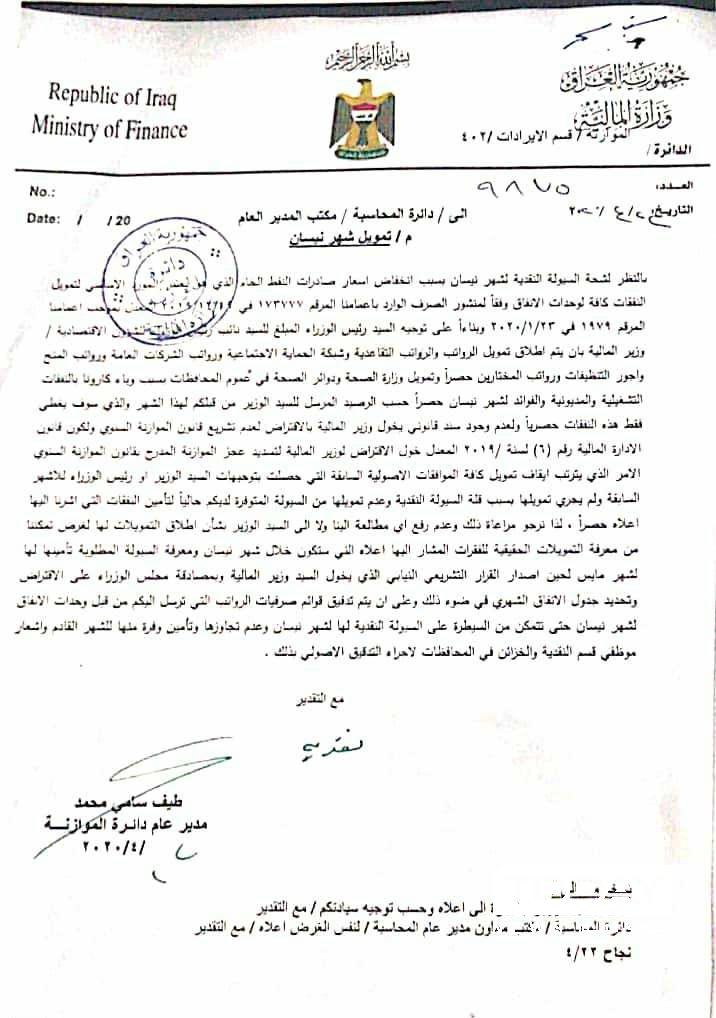 بسم الله الرحمن الرحيم
جمهورية العراق
وزارة المالية
Republic of Iraq
Ministry of Finance
الموازنة / قسم الايرادات /٤٠٢
الدائرة /
العدد: ٩٨٧٥
No.:
التاريخ:
Date: / /20
الى / دائرة المحاسبة / مكتب المدير العام
م / تمويل شهر نيسان
جمهورية العراق
دائرة
بالنظر لشحة السيولة النقدية لشهر نيسان بسبب انخفاض اسعار صادرات النفط الخام الذي المورد الاساسي لتمويل
النفقات كافة لوحدات الانفاق وفقاً لمنشور الصرف الوارد باعمامنا المرقم ١٧٣٧٧٧ في بموجب اعمامنا
المرقم ١٩٧٩ في ٢٠٢٠/١/٢٣ وبناءاً على توجيه السيد رئيس الوزراء المبلغ للسيد نائب لشؤون الاقتصادية /
وزير المالية بان يتم اطلاق تمويل الرواتب والرواتب التقاعدية وشبكة الحماية الاجتماعية ورواتب الشركات العامة ورواتب المنح
واجور التنظيفات ورواتب المختارين حصراً وتمويل وزارة الصحة ودوائر الصحة في عموم المحافظات بسبب وباء كارونا بالنفقات
التشغيلية والمديونية والفوائد لشهر نيسان حصراً حسب الرصيد المرسل للسيد الوزير من قبلكم لهذا الشهر والذي سوف يغطي
فقط هذه النفقات حصرياً ولعدم وجود سند قانوني يخول وزير المالية بالاقتراض لعدم تشريع قانون الموازنة السنوي ولكون قانون
الادارة المالية رقم (٦) لسنة /٢٠١٩ المعدل خول الاقتراض لوزير المالية لتسديد عجز الموازنة المدرج بقانون الموازنة السنوي
الامر الذي يترتب ايقاف تمويل كافة الموافقات الاصولية السابقة التي حصلت بتوجيهات السيد الوزير او رئيس الوزراء للاشهر
السابقة ولم يجري تمويلها بسبب قلة السيولة النقدية وعدم تمويلها من السيولة المتوفرة لديكم حالياً لتأمين النفقات التي اشرنا اليها
اعلاه حصراً ، لذا نرجو مراعاة ذلك وعدم رفع اي مطالعة الينا ولا الى السيد الوزير بشأن اطلاق التمويلات لها لغرض تمكننا
من معرفة التمويلات الحقيقية للفقرات المشار اليها اعلاه التي ستكون خلال شهر نيسان ومعرفة السيولة المطلوبة تأمينها لها
لشهر مايس لحين اصدار القرار التشريعي النيابي الذي يخول السيد وزير المالية وبمصادقة مجلس الوزراء على الاقتراض
وتحديد جدول الانفاق الشهري في ضوء ذلك وعلى ان يتم تدقيق قوائم صرفيات الرواتب التي ترسل اليكم من قبل وحدات الانفاق
لشهر نيسان حتى تتمكن من السيطرة على السيولة النقدية لها لشهر نيسان وعدم تجاوزها وتأمين وفرة منها للشهر القادم واشعار
موظفي قسم النقدية والخزائن في المحافظات لاجراء التدقيق الاصولي بذلك .
مع التقدير
طيف سامي محمد
مدير عام دائرة الموازنــة
٢٠٢٠/٤/
الى اعلاه وحسب توجيه سيادتكم / مع التقدير
دائرة المحاسبة / مكتب معاون مدير عام المحاسبة / لنفس الغرض اعلاه / مع التقدير
نجاح ٤/٢٢